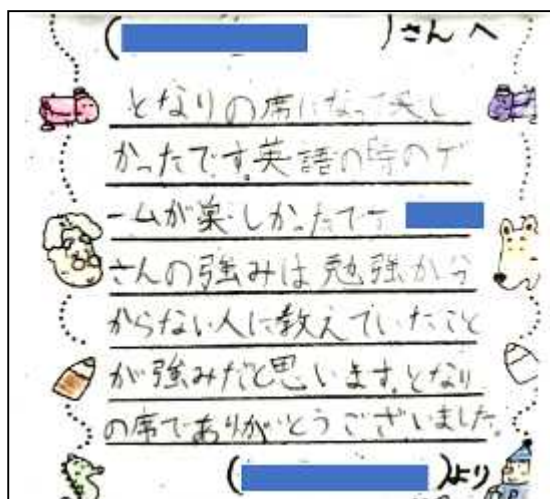 ( )さんへ
となりの席になって楽し
かったです。英語の時のゲ
ームが楽しかったです
さんの強みは勉強が分
からない人に教えていたこと
が強みだと思います。となり
の席でありがとうございました。
( )より